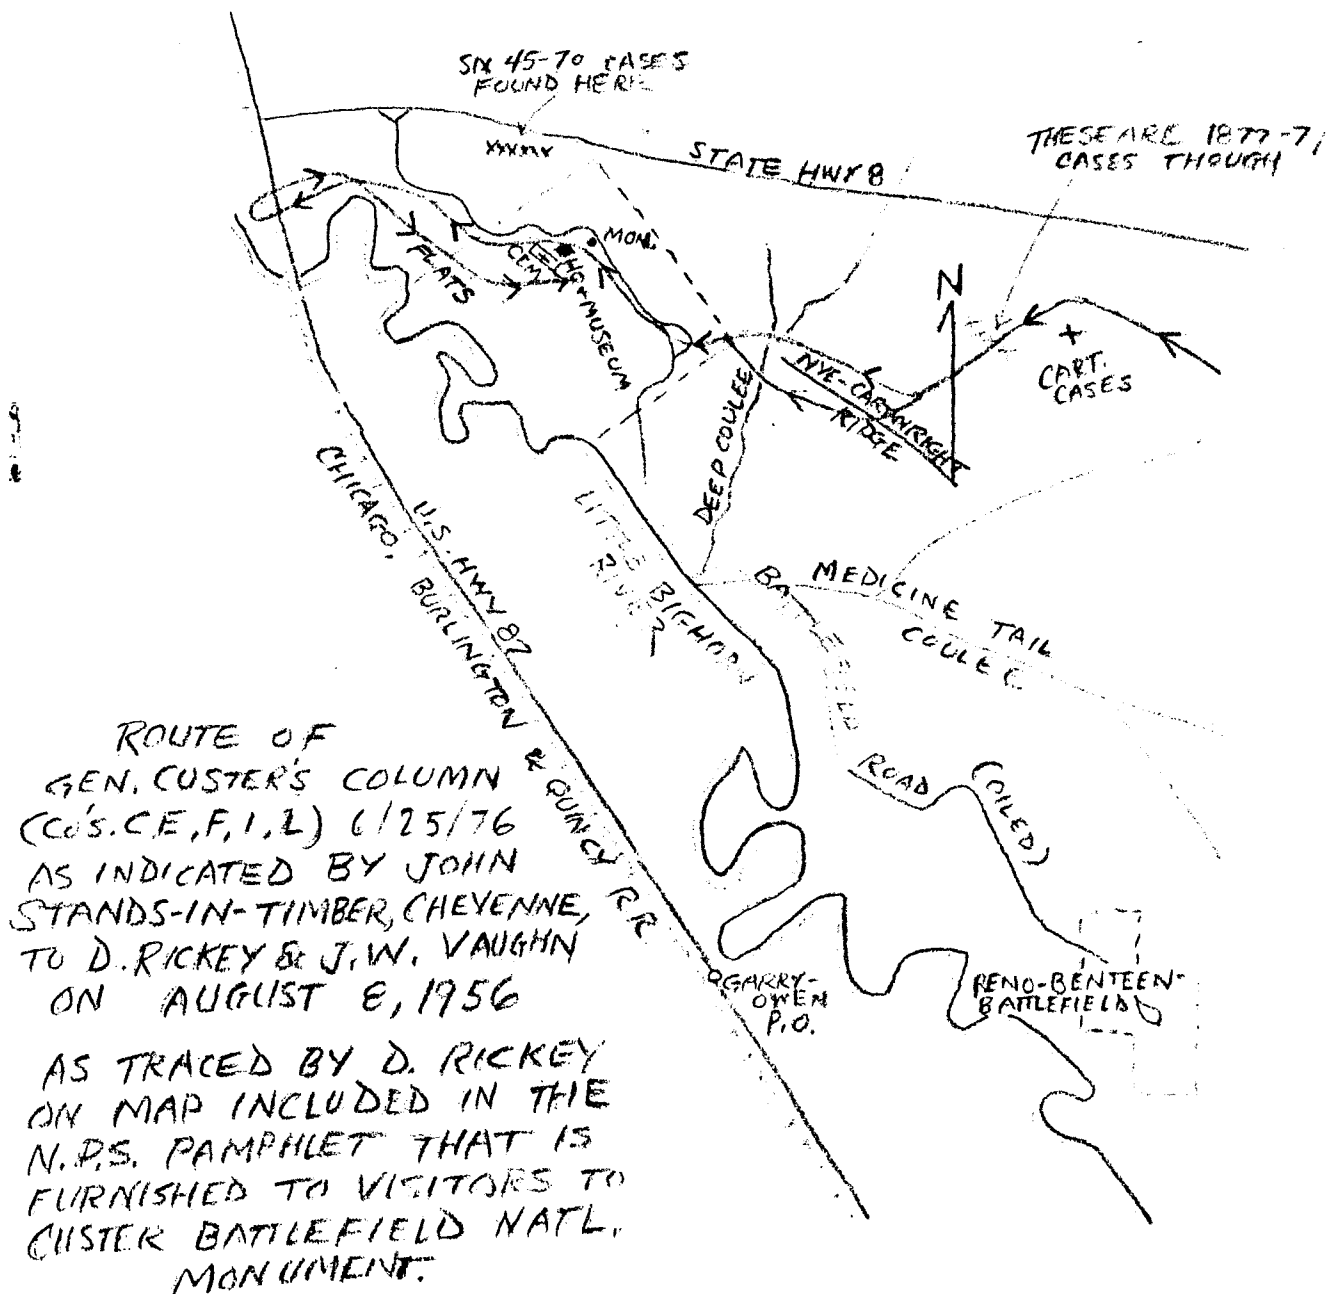 SIX 45-70 CASES
FOUND HERE
xxxxxx
STATE HWY 8
THESE ARE 1877-7
CASES THOUGH
MON.
CEM
HQ & MUSEUM
FLATS
N
+
CART.
CASES
NYE-CARTWRIGHT
RIDGE
DEEP COULEE
CHICAGO, BURLINGTON & QUINCY R R
U.S. HWY 87
LITTLE BIGHORN
RIVER
BATTLEFIELD
ROAD
(OILED)
MEDICINE TAIL
COULEE
GARRY-
OWEN
P.O.
RENO-BENTEEN-
BATTLEFIELD
ROUTE OF
GEN. CUSTER'S COLUMN
(CO'S. C,E,F,I,L) 6/25/76
AS INDICATED BY JOHN
STANDS-IN-TIMBER, CHEYENNE,
TO D. RICKEY & J.W. VAUGHN
ON AUGUST 8, 1956
AS TRACED BY D. RICKEY
ON MAP INCLUDED IN THE
N.P.S. PAMPHLET THAT IS
FURNISHED TO VISITORS TO
CUSTER BATTLEFIELD NATL.
MONUMENT.